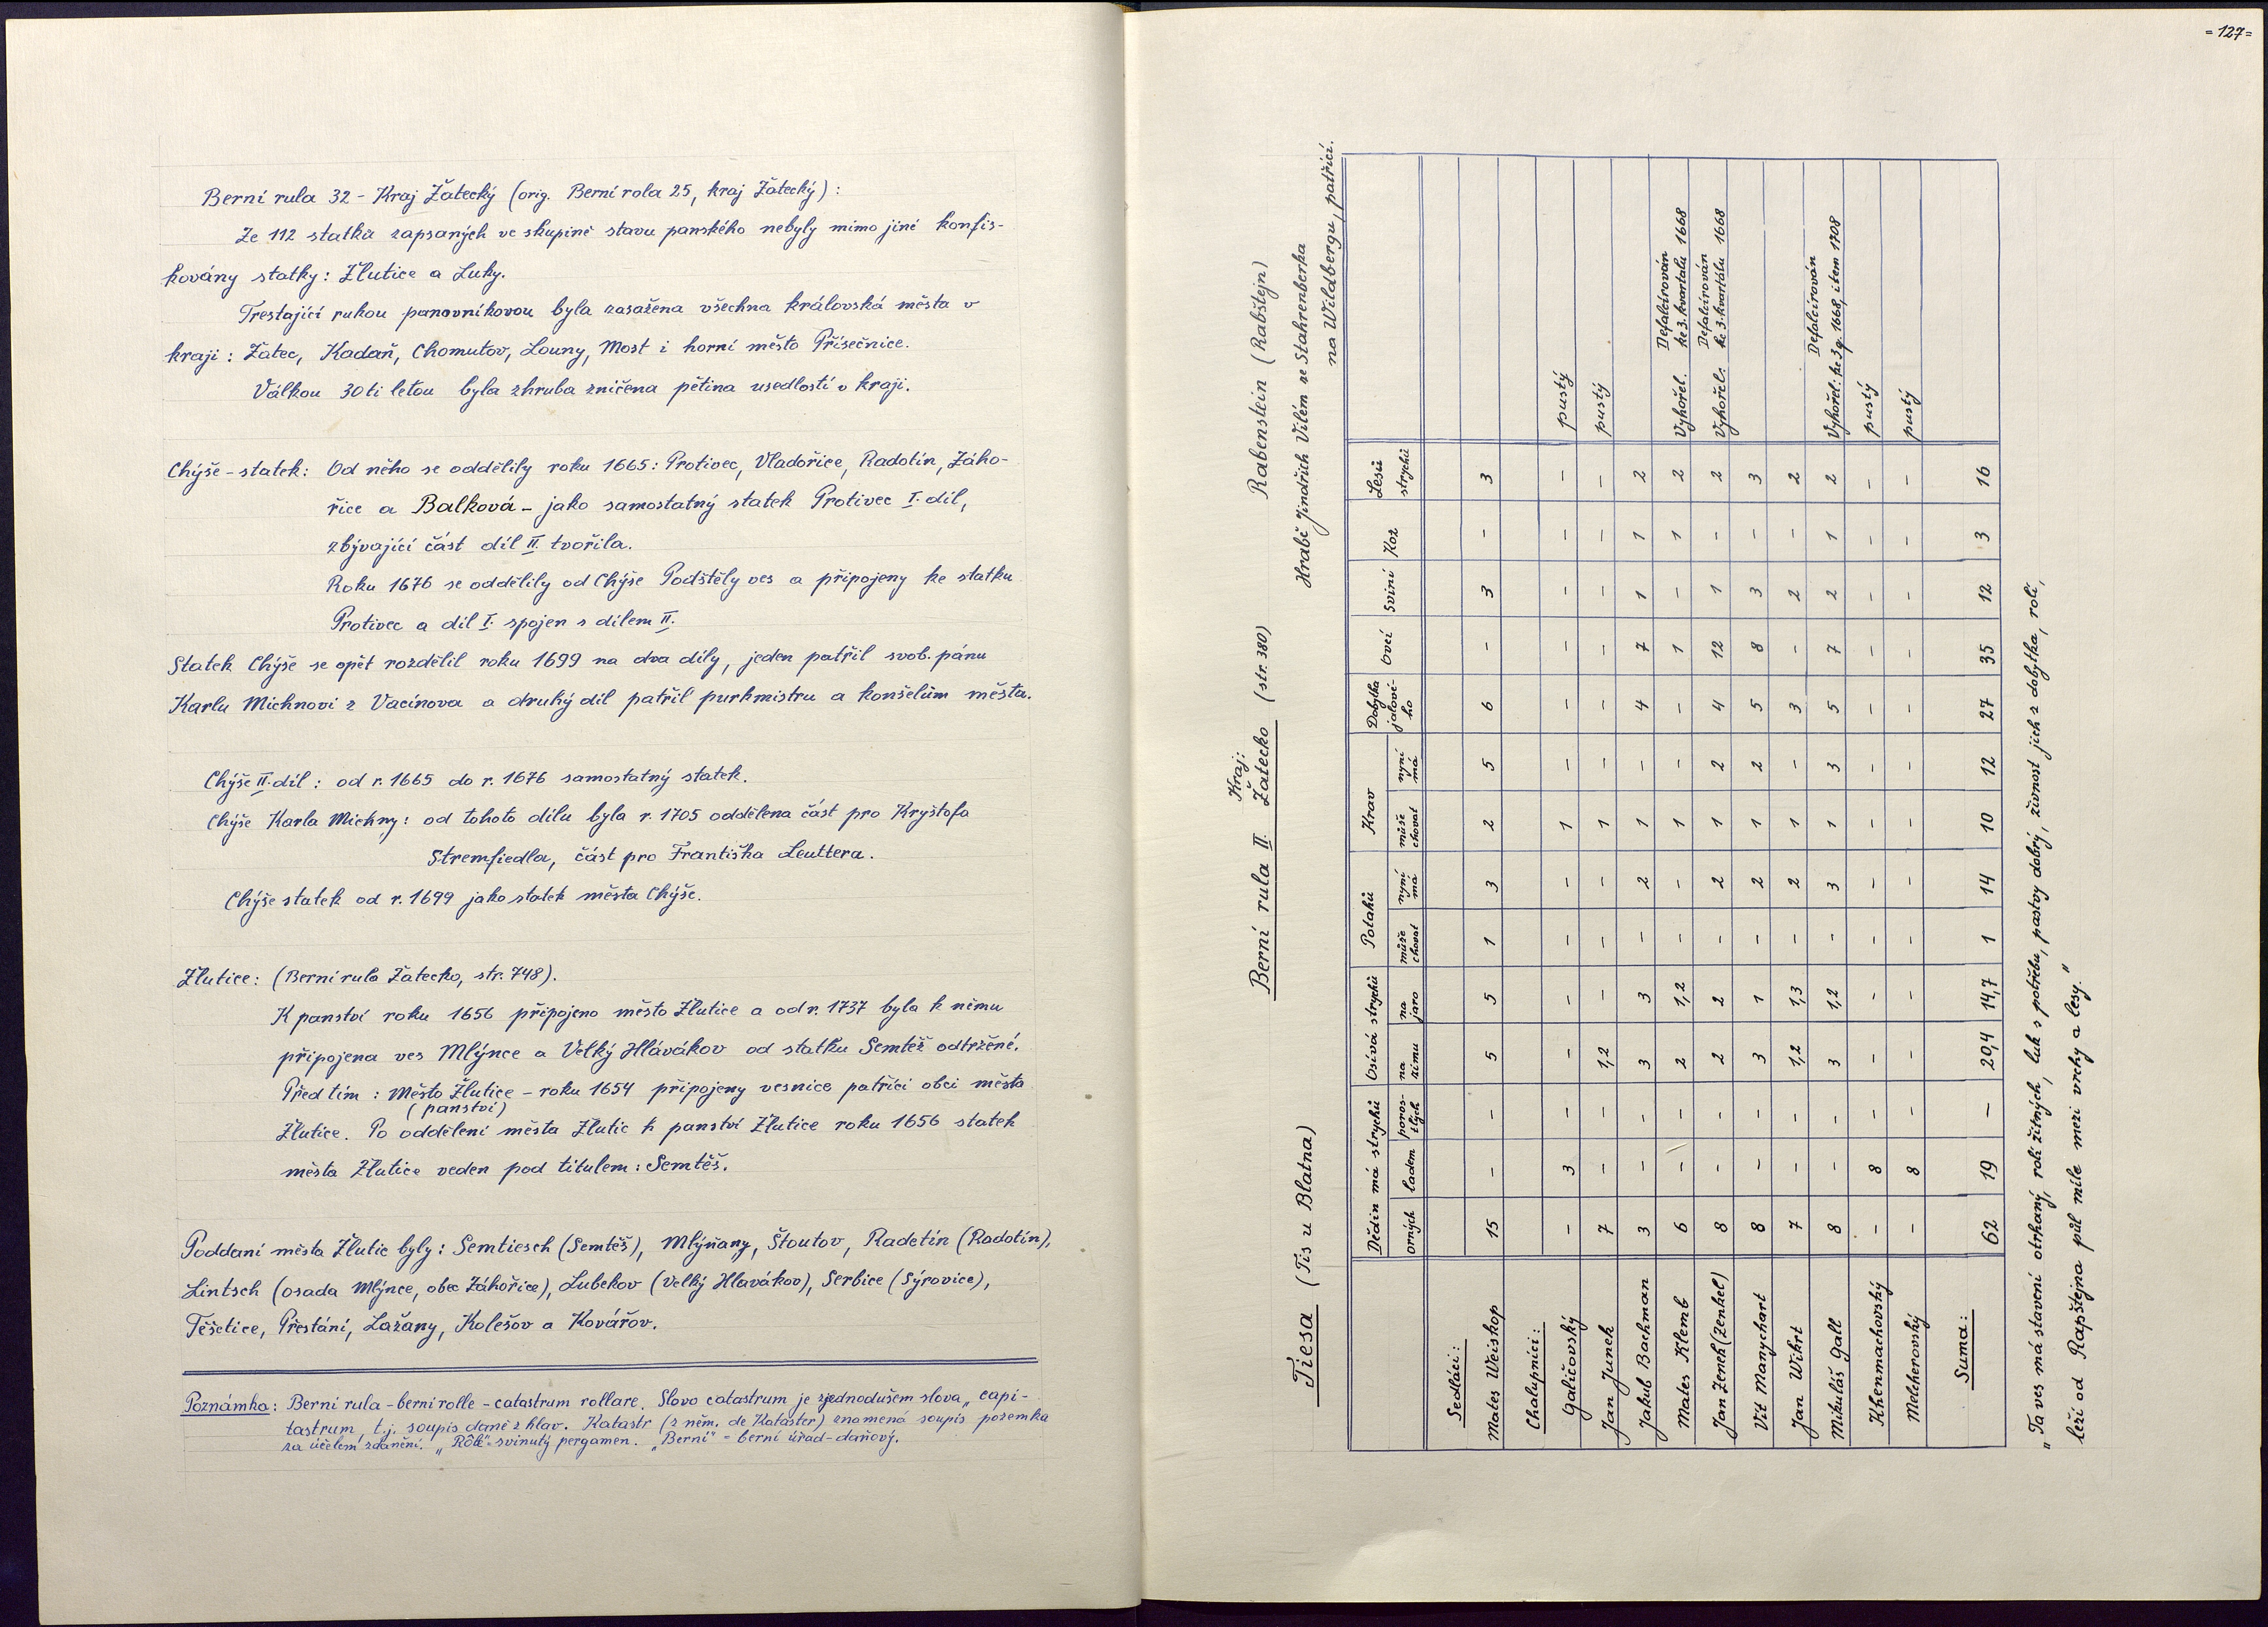 Berní rula 32 - Kraj Žatecký (orig. Berní rola 25, kraj Žatecký):
Ze 112 statků zapsaných ve skupině stavu panského nebyly mimo jiné konfis-
kovány statky: Žlutice a Luky.
Trestající rukou panovníkovou byla zasažena všechna královská města v
kraji: Žatec, Kadaň, Chomutov, Louny, Most i horní město Přísečnice.
Válkou 30ti letou byla zhruba zničena pětina usedlostí v kraji.
Chýše-statek: Od něho se oddělily roku 1665: Protivec, Vladořice, Radotín, Záho-
řice a Balková - jako samostatný statek Protivec I. díl,
zbývající část díl II. tvořila.
Roku 1676 se oddělily od Chýše Podštěly ves a připojeny ke statku
Protivec a díl I. spojen s dílem II.
Statek Chýše se opět rozdělil roku 1699 na dva díly, jeden patřil svob. pánu
Karlu Michnovi z Vacínova a druhý díl patřil purkmistru a konšelům města.
Chýše II. díl: od r. 1665 do r. 1676 samostatný statek.
Chýše Karla Michny: od tohoto dílu byla r. 1705 oddělena část pro Kryštofa
Stremfiedla, část pro Františka Leuttera.
Chýše statek od r. 1699 jako statek města Chýše.
Žlutice: (Berní rula Žatecko, str. 748).
K panství roku 1656 připojeno město Žlutice a od r. 1737 byla k němu
připojena ves Mlýnce a Velký Hlávákov od statku Semtěš odtržené.
Před tím: Město Žlutice - roku 1654 připojeny vesnice patřící obci města
(panství)
Žlutice. Po oddělení města Žlutic k panství Žlutice roku 1656 statek
města Žlutice veden pod titulem: Semtěš.
Poddaní města Žlutic byly: Semtiesch (Semtěš), Mlýňany, Štoutov, Radetin (Radotín),
Lintsch (osada Mlýnce, obec Záhořice), Lubekov (Velký Hlavákov), Serbice (Sýrovice),
Těšetice, Přestání, Lažany, Kolešov a Kovářov.
Poznámka: Berní rula - berní rolle - catastrum rollare. Slovo catastrum je zjednodušem slova „capi-
tastrum, t.j. soupis daně z hlav. Katastr (z něm. de Kataster) znamená soupis pozemků
za účelem zdanění. „Rôle"-svinutý pergamen. „Berní" = berní úřad-daňový.
=127=
Kraj:
Berní rula II. Žatecko (str. 380) Rabenstein (Rabštejn)
Tiesa (Tis u Blatna) Hrabě Jindřich Vilém ze Stahrenberka
na Wildbergu, patřící.
Dědin má strychů Osívá strychů Potahů Krav Dobytka jalové-ho Ovcí Sviní Koz Lesů strychů
orných ladem poros-tlých na zimu na jaro může chovat nyní má může chovat nyní má
Sedláci:
Mates Weiskop 15 - - 5 5 1 3 2 5 6 - 3 - 3
Chalupníci:
Galičovský - 3 - - - - - 1 - - - - - - pustý
Jan Junek 7 - - 1,2 - - - 1 - - - - - - pustý
Jakub Bachman 3 - - 3 3 - 2 1 - 4 7 1 1 2
Mates Klemb 6 - - 2 1,2 - - 1 - - 1 - 1 2 Vyhořel. Defalcírován ke 3. kvartálu 1668
Jan Zenek (Zenkel) 8 - - 2 2 - 2 1 2 4 12 1 - 2 Vyhořel: Defalcírován ke 3. kvartálu 1668
Vít Manychart 8 - - 3 1 - 2 1 2 5 8 3 - 3
Jan Wikrt 7 - - 1,2 1,3 - 2 1 - 3 - 2 - 2
Mikuláš Gall 8 - - 3 1,2 - 3 1 3 5 7 2 1 2 Vyhořel: Defalcírován ke 3 q. 1668, item 1708
Khenmachovský - 8 - - - - - - - - - - - - pustý
Melcherovský - 8 - - - - - - - - - - - - pustý
Suma: 62 19 - 20,4 14,7 1 14 10 12 27 35 12 3 16
„Ta ves má stavení otrhaný, rolí žitných, luk s potřebu, pastvy dobrý, živnost jich z dobytka, rolí,
leží od Rapštejna půl míle mezi vrchy a lesy."